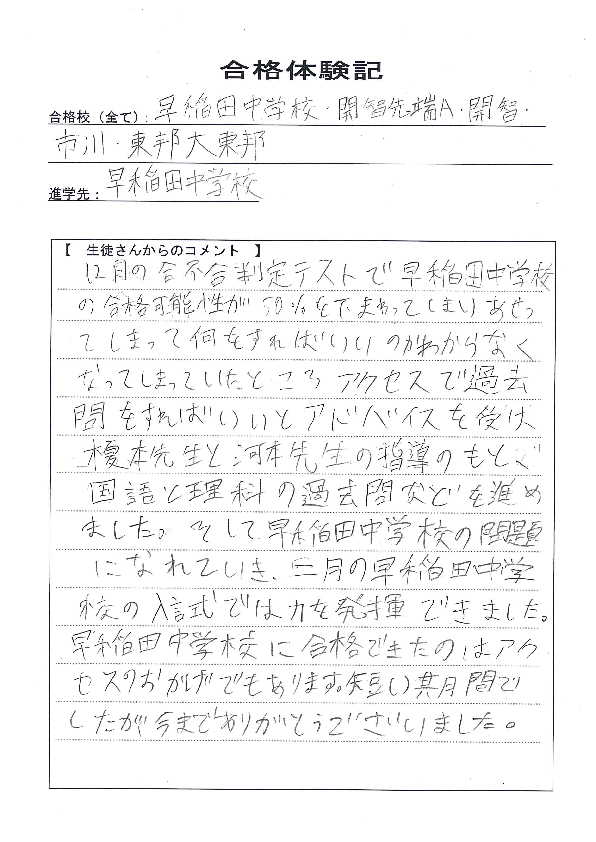 合格体験記
合格校（全て）: 早稲田中学校・開智先端A・開智・
市川・東邦大東邦
進学先： 早稲田中学校
【 生徒さんからのコメント 】
12月の合不合判定テストで早稲田中学校
の合格可能性が50%を下まわってしまいあせっ
てしまって何をすればいいのかわからなく
なってしまっていたところアクセスで過去
問をすればいいとアドバイスを受け
榎本先生と河本先生の指導のもとで
国語と理科の過去問などを進め
ました。そして早稲田中学校の問題
になれていき、二月の早稲田中学
校の入試では力を発揮できました。
早稲田中学校に合格できたのはアク
セスのおかげでもあります。短い期間で
したが今までありがとうございました。